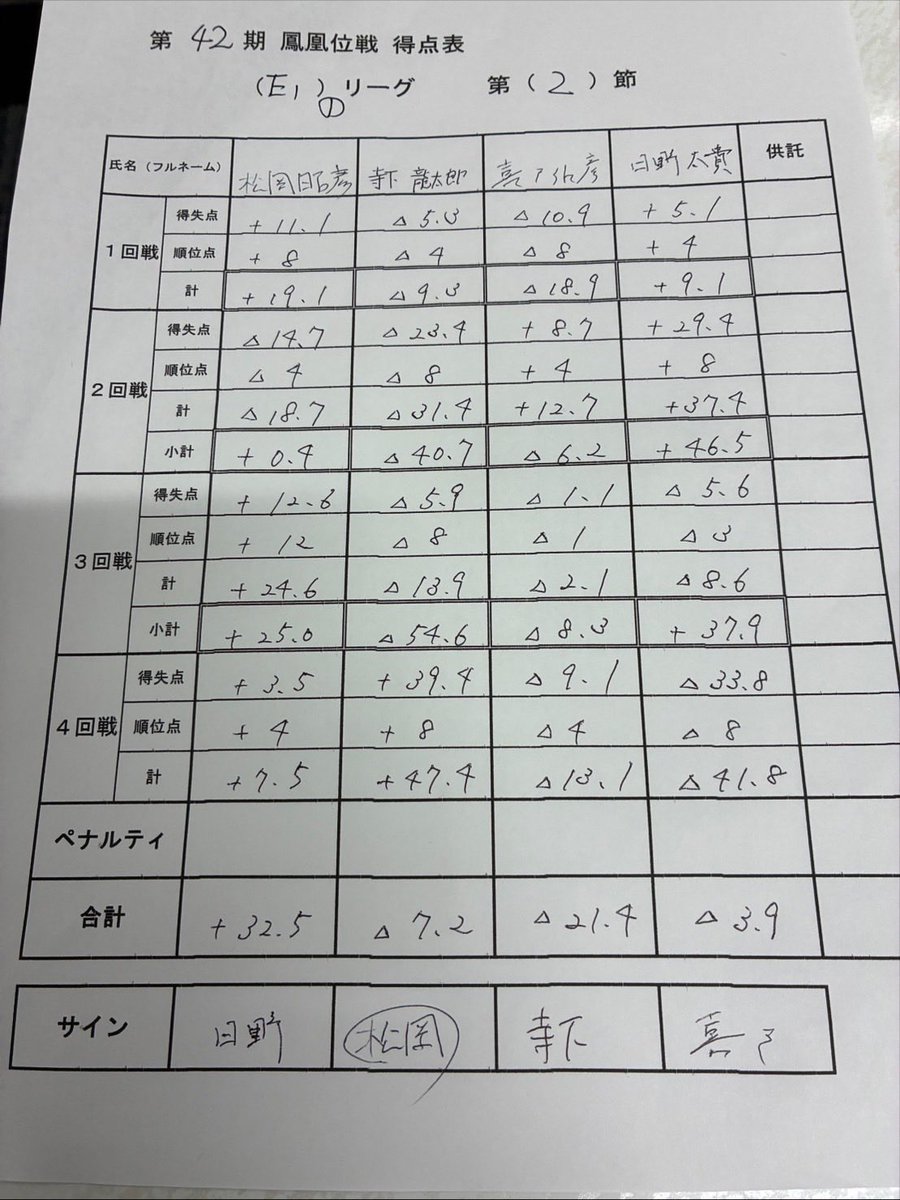 第 42 期 鳳凰位戦 得点表
(E1) リーグ 第 ( 2 ) 節
①
氏名(フルネーム) 寺下 龍太郎 日野 太貴 供託
1回戦
得失点 +11.1 △5.3 △10.9 +5.1
順位点 +8 △4 △8 +4
計 +19.1 △9.3 △18.9 +9.1
2回戦
得失点 △14.7 △23.4 +8.7 +29.4
順位点 △4 △8 +4 +8
計 △18.7 △31.4 +12.7 +37.4
小計 +0.4 △40.7 △6.2 +46.5
3回戦
得失点 +12.6 △5.9 △1.1 △5.6
順位点 +12 △8 △1 △3
計 +24.6 △13.9 △2.1 △8.6
小計 +25.0 △54.6 △8.3 +37.9
4回戦
得失点 +3.5 +39.4 △9.1 △33.8
順位点 +4 +8 △4 △8
計 +7.5 +47.4 △13.1 △41.8
ペナルティ
合計 +32.5 △7.2 △21.4 △3.9
サイン 日野 松岡 寺下 喜多